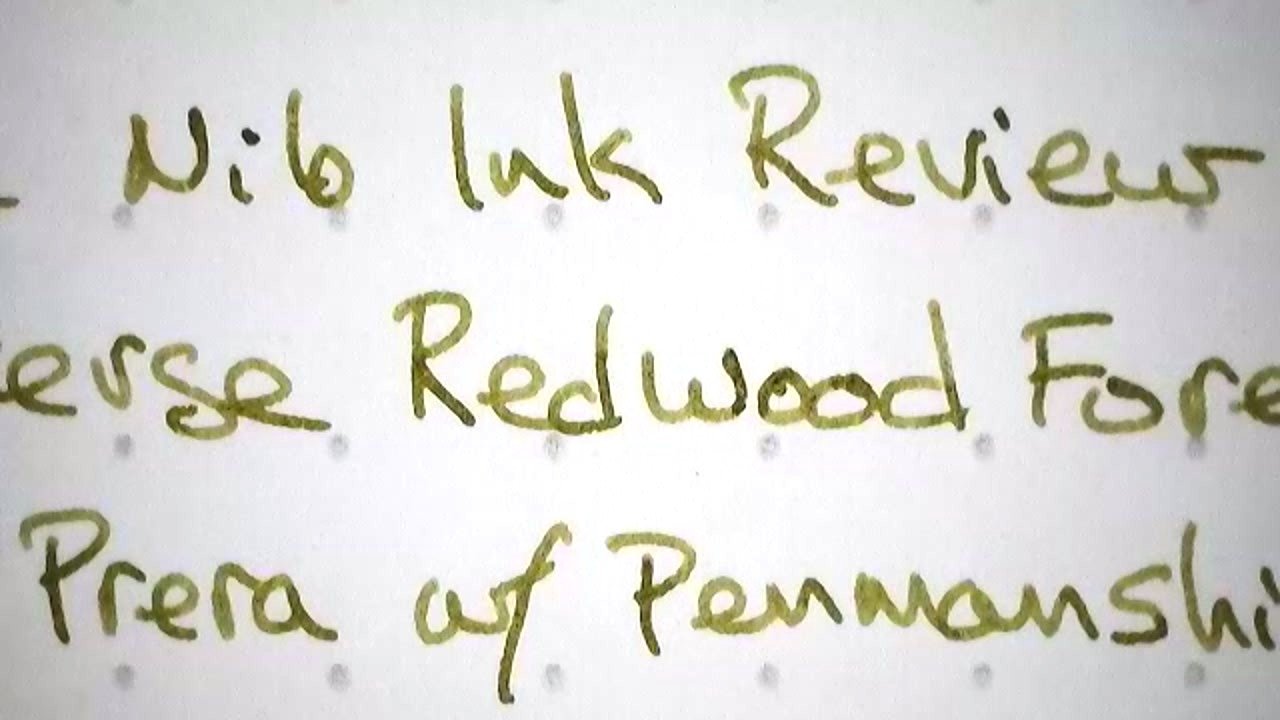 Nib Ink Review
erse Redwood Fore
Prera w/ Penmanshi